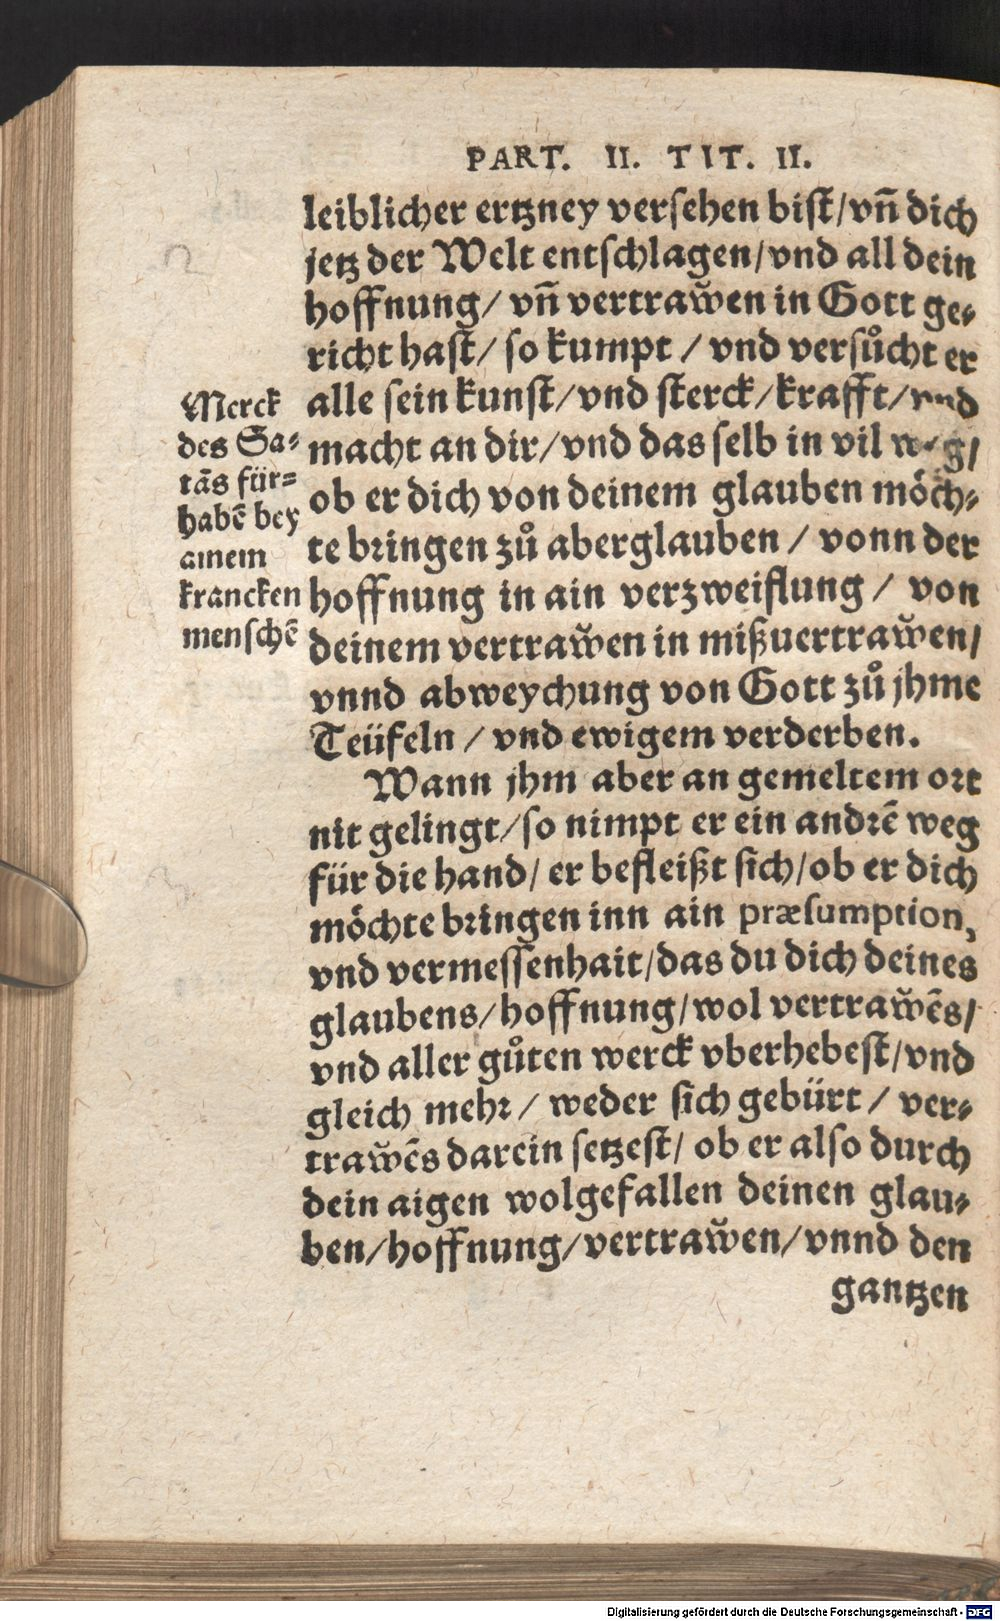 PART. II. TIT. II.
leiblicher ertzney versehen bist/vñ dich
jetz der Welt entschlagen/vnd all dein
hoffnung/ vñ vertraw̆en in Gott ge⸗
richt hast/ so kumpt / vnd versůcht er
alle sein kunst/vnd sterck/krafft/vnd
macht an dir/vnd das selb in vil weg/
ob er dich von deinem glauben möch⸗
te bringen zů aberglauben / vonn der
hoffnung in ain verzweiflung / von
deinem vertraw̆en in mißuertraw̆en/
vnnd abweychung von Gott zů jhme
Teüfeln / vnd ewigem verderben.
Merck
des Sa⸗
tās für⸗
habē bey
ainem
krancken
menschē
Wann jhm aber an gemeltem ort
nit gelingt/so nimpt er ein andrē weg
für die hand/ er befleißt sich/ob er dich
möchte bringen inn ain præsumption,
vnd vermessenhait/das du dich deines
glaubens/hoffnung/wol vertraw̆ēs/
vnd aller gůten werck vberhebest/vnd
gleich mehr/ weder sich gebürt / ver⸗
traw̆ēs darein setzest/ ob er also durch
dein aigen wolgefallen deinen glau⸗
ben/hoffnung/vertraw̆en/vnnd den
gantzen
Digitalisierung gefördert durch die Deutsche Forschungsgemeinschaft - DFG